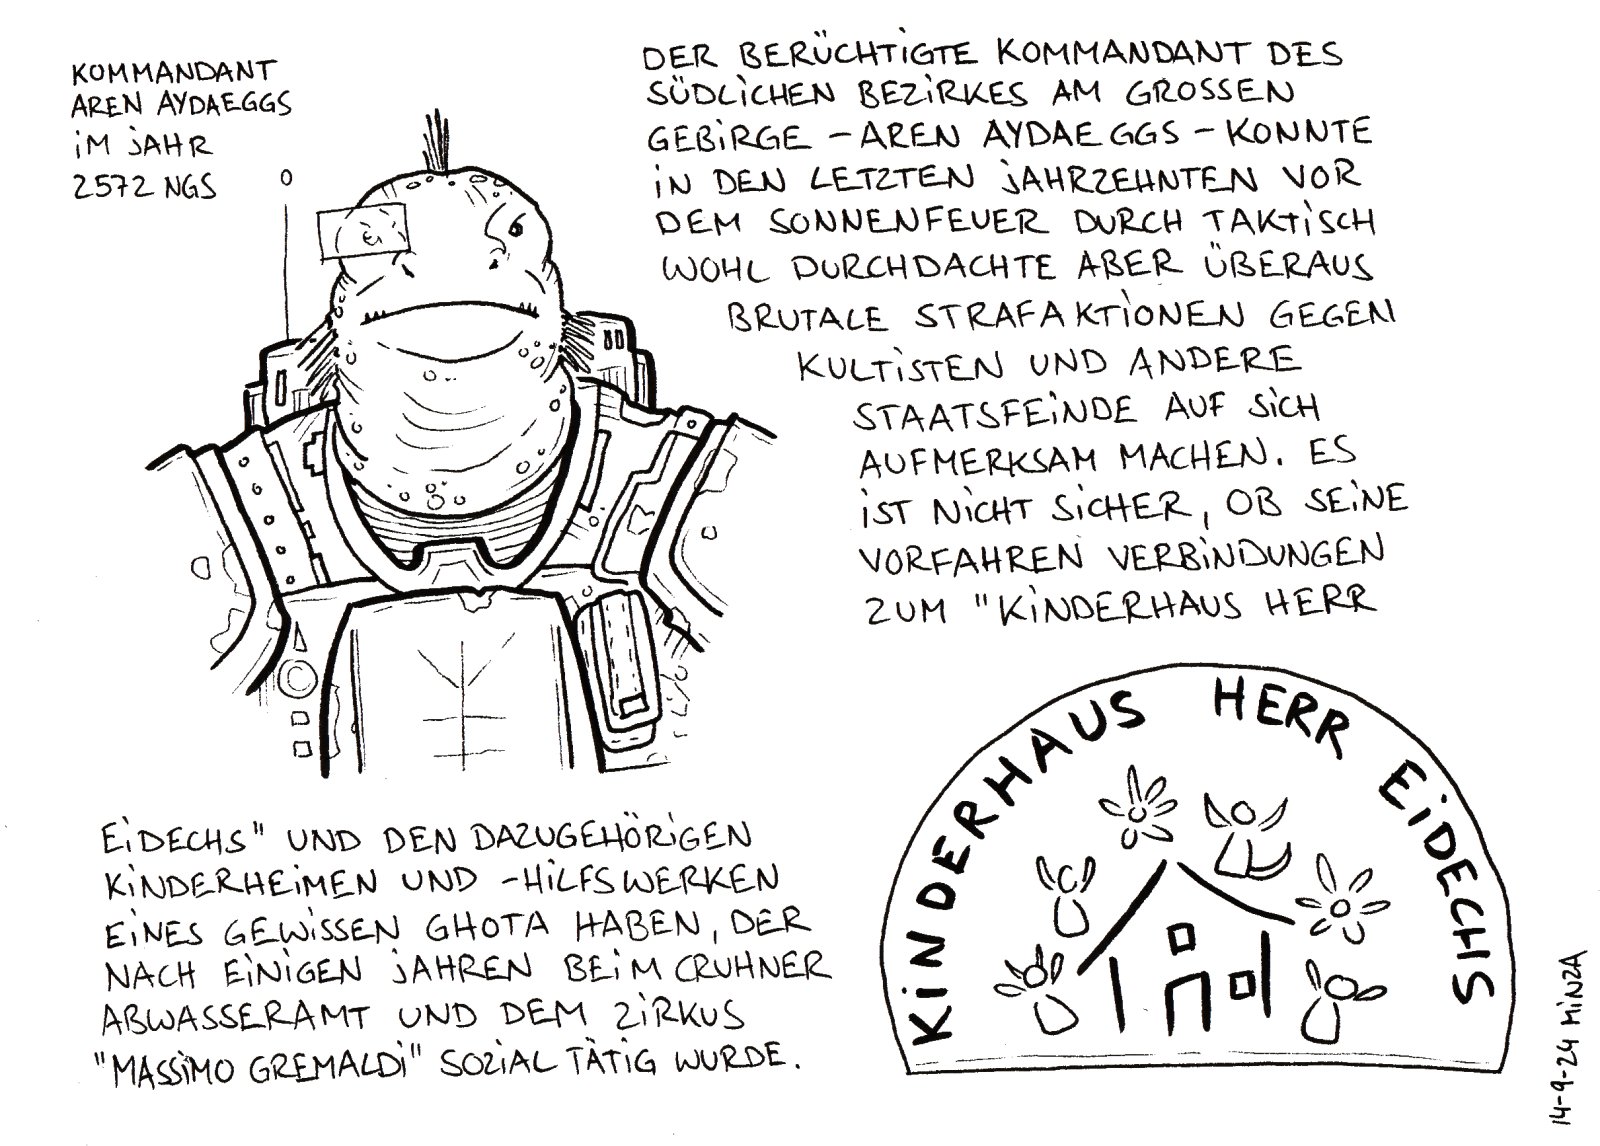 KOMMANDANT
AREN AYDAEGGS
iM JAHR
2572 NGS
DER BERÜCHTiGTE KOMMANDANT DES
SÜDLiCHEN BEZiRKES AM GROSSEN
GEBiRGE – AREN AYDAEGGS – KONNTE
iN DEN LETZTEN JAHRZEHNTEN VOR
DEM SONNENFEUER DURCH TAKTiSCH
WOHL DURCHDACHTE ABER ÜBERAUS
BRUTALE STRAFAKTiONEN GEGEN
KULTiSTEN UND ANDERE
STAATSFEiNDE AUF SiCH
AUFMERKSAM MACHEN. ES
iST NiCHT SiCHER, OB SEiNE
VORFAHREN VERBiNDUNGEN
ZUM "KiNDERHAUS HERR
EiDECHS" UND DEN DAZUGEHÖRiGEN
KiNDERHEiMEN UND -HiLFSWERKEN
EiNES GEWiSSEN GHOTA HABEN, DER
NACH EiNiGEN JAHREN BEiM CRUHNER
ABWASSERAMT UND DEM ZiRKUS
"MASSiMO GREMALDi" SOZiAL TÄTiG WURDE.
KiNDERHAUS HERR EiDECHS
14-9-24 MiNZA